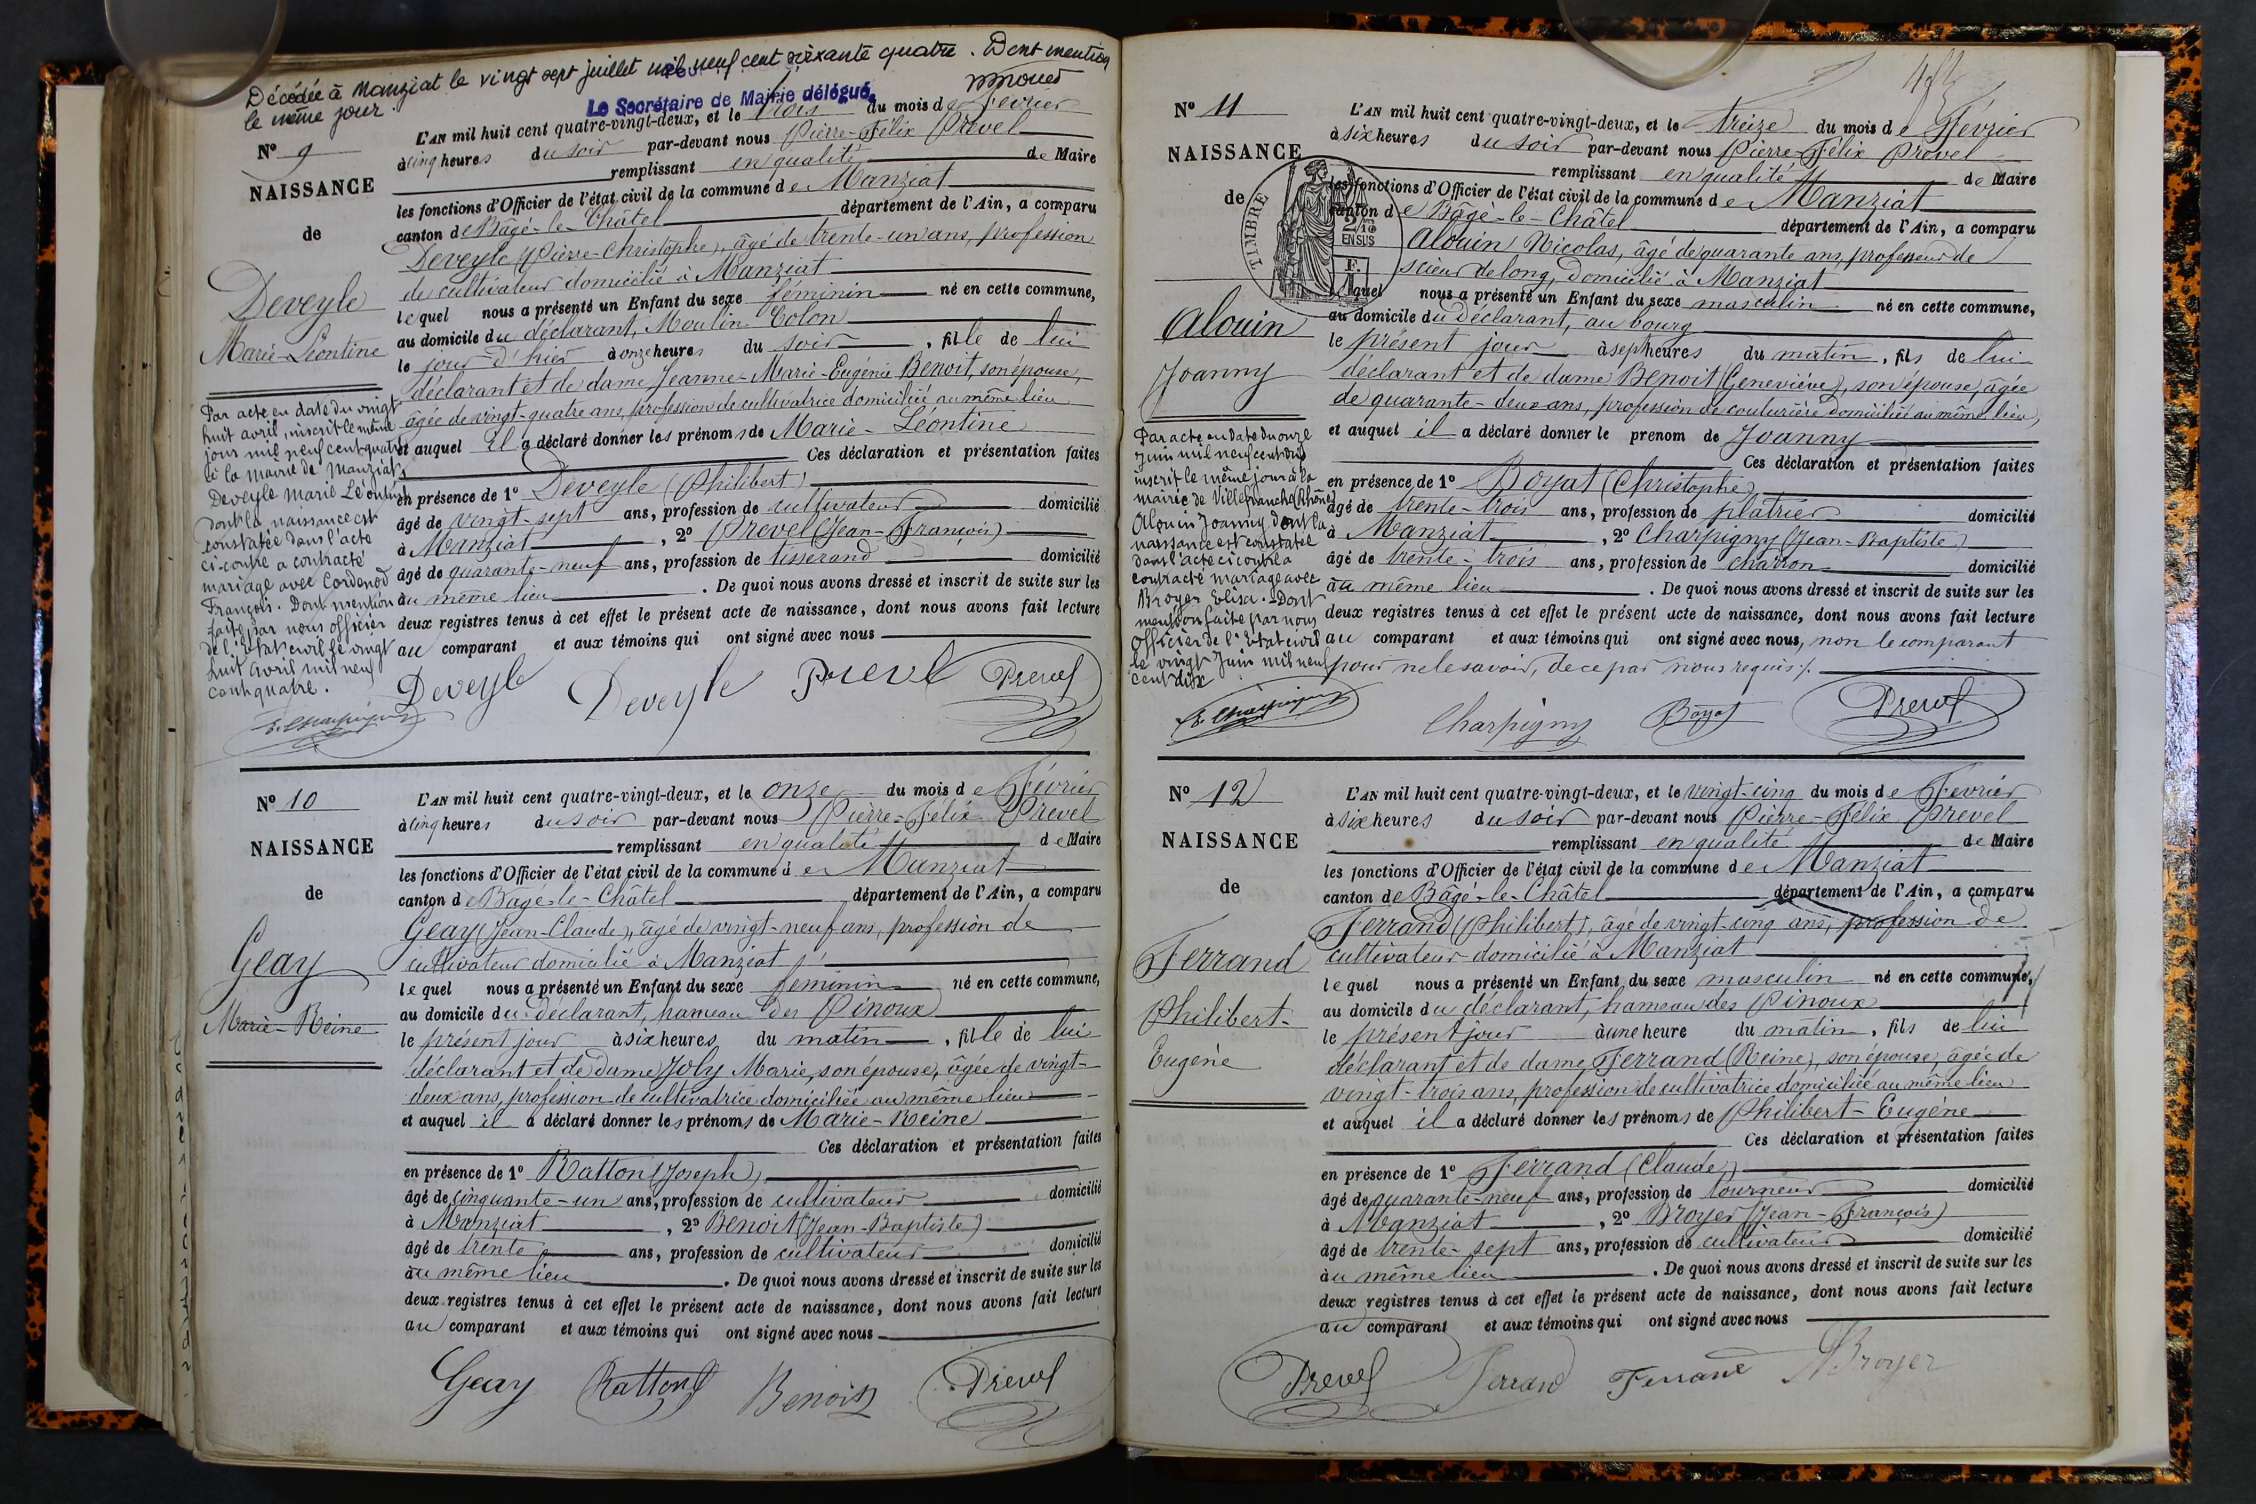 Décédée à Manziat le vingt sept juillet mil neuf cent soixante quatre. Dont mention
le même jour
Le Secrétaire de Mairie délégué,
N° 9
NAISSANCE
de
Deveyle
Marie-Léontine
Par acte en date du vingt
huit avril, inscrit le même
jour mil neuf cent quatre
à la mairie de Manziat
Deveyle Marie Léontine
dont la naissance est
constatée dans l'acte
ci-contre a contracté
mariage avec Cordenod
François. Dont mention
faite par nous officier
de l'état civil le vingt
huit avril mil neuf
cent quatre.
L'AN mil huit cent quatre-vingt-deux, et le trois du mois de Février
à cinq heures du soir par-devant nous Pierre-Félix Prevel
remplissant en qualité de Maire
les fonctions d'Officier de l'état civil de la commune de Manziat
canton de Bâgé-le-Châtel département de l'Ain, a comparu
Deveyle (Pierre-Christophe), âgé de trente-un ans, profession
de cultivateur domicilié à Manziat
lequel nous a présenté un Enfant du sexe féminin né en cette commune,
au domicile du déclarant, Moulin Colon
le jour d'hier à onze heures du soir, fille de lui
déclarant et de dame Jeanne-Marie-Eugénie Benoit, son épouse,
âgée de vingt-quatre ans, profession de cultivatrice domiciliée au même lieu
et auquel il a déclaré donner les prénoms de Marie-Léontine
Ces déclaration et présentation faites
en présence de 1° Deveyle (Philibert)
âgé de vingt-sept ans, profession de cultivateur domicilié
à Manziat, 2° Prevel (Jean-François)
âgé de quarante-neuf ans, profession de tisserand domicilié
au même lieu. De quoi nous avons dressé et inscrit de suite sur les
deux registres tenus à cet effet le présent acte de naissance, dont nous avons fait lecture
au comparant et aux témoins qui ont signé avec nous
Deveyle Deveyle Prevel Prevel
N° 10
NAISSANCE
de
Geay
Marie-Reine
L'AN mil huit cent quatre-vingt-deux, et le onze du mois de Février
à cinq heures du soir par-devant nous Pierre-Félix Prevel
remplissant en qualité de Maire
les fonctions d'Officier de l'état civil de la commune de Manziat
canton de Bâgé-le-Châtel département de l'Ain, a comparu
Geay (Jean-Claude), âgé de vingt-neuf ans, profession de
cultivateur domicilié à Manziat
lequel nous a présenté un Enfant du sexe féminin né en cette commune,
au domicile du déclarant, hameau des Pinoux
le présent jour à six heures du matin, fille de lui
déclarant et de dame Joly Marie, son épouse, âgée de vingt-
deux ans, profession de cultivatrice domiciliée au même lieu
et auquel il a déclaré donner les prénoms de Marie-Reine
Ces déclaration et présentation faites
en présence de 1° Ratton (Joseph)
âgé de cinquante-un ans, profession de cultivateur domicilié
à Manziat, 2° Benoit (Jean-Baptiste)
âgé de trente ans, profession de cultivateur domicilié
au même lieu. De quoi nous avons dressé et inscrit de suite sur les
deux registres tenus à cet effet le présent acte de naissance, dont nous avons fait lecture
au comparant et aux témoins qui ont signé avec nous
Geay Ratton Benoit Prevel
N° 11
NAISSANCE
de
TIMBRE
2/10
EN SUS
Alouin
Joanny
Par acte en date du onze
juin mil neuf cent dix
inscrit le même jour à la
mairie de Villefranche (Rhône)
Alouin Joanny dont la
naissance est constatée
dans l'acte ci contre a
contracté mariage avec
Broyer Elisa. Dont
mention faite par nous
Officier de l'Etat civil
le vingt Juin mil neuf
cent dix
L'AN mil huit cent quatre-vingt-deux, et le treize du mois de Février
à six heures du soir par-devant nous Pierre-Félix Prevel
remplissant en qualité de Maire
les fonctions d'Officier de l'état civil de la commune de Manziat
canton de Bâgé-le-Châtel département de l'Ain, a comparu
Alouin Nicolas, âgé de quarante ans, professeur de
scieur de long, domicilié à Manziat
lequel nous a présenté un Enfant du sexe masculin né en cette commune,
au domicile du déclarant, au bourg
le présent jour à sept heures du matin, fils de lui
déclarant et de dame Benoit (Geneviève), son épouse, âgée
de quarante-deux ans, profession de couturière domiciliée au même lieu,
et auquel il a déclaré donner le prenom de Joanny
Ces déclaration et présentation faites
en présence de 1° Boyat (Christophe)
âgé de trente-trois ans, profession de plâtrier domicilié
à Manziat, 2° Charpigny (Jean-Baptiste)
âgé de trente-trois ans, profession de charron domicilié
au même lieu. De quoi nous avons dressé et inscrit de suite sur les
deux registres tenus à cet effet le présent acte de naissance, dont nous avons fait lecture
au comparant et aux témoins qui ont signé avec nous, non le comparant
pour ne le savoir, de ce par nous requis.
Charpigny Boyat Prevel
N° 12
NAISSANCE
de
Ferrand
Philibert-
Eugène
L'AN mil huit cent quatre-vingt-deux, et le vingt-cinq du mois de Février
à six heures du soir par-devant nous Pierre-Félix Prevel
remplissant en qualité de Maire
les fonctions d'Officier de l'état civil de la commune de Manziat
canton de Bâgé-le-Châtel département de l'Ain, a comparu
Ferrand (Philibert), âgé de vingt-cinq ans, profession de
cultivateur domicilié à Manziat
lequel nous a présenté un Enfant du sexe masculin né en cette commune,
au domicile du déclarant, hameau des Pinoux
le présent jour à une heure du matin, fils de lui
déclarant et de dame Ferrand (Reine), son épouse, âgée de
vingt-trois ans, profession de cultivatrice domiciliée au même lieu
et auquel il a déclaré donner les prénoms de Philibert-Eugène
Ces déclaration et présentation faites
en présence de 1° Ferrand (Claude)
âgé de quarante-neuf ans, profession de tourneur domicilié
à Manziat, 2° Broyer (Jean-François)
âgé de trente-sept ans, profession de cultivateur domicilié
au même lieu. De quoi nous avons dressé et inscrit de suite sur les
deux registres tenus à cet effet le présent acte de naissance, dont nous avons fait lecture
au comparant et aux témoins qui ont signé avec nous
Prevel Ferrand Ferrand Broyer